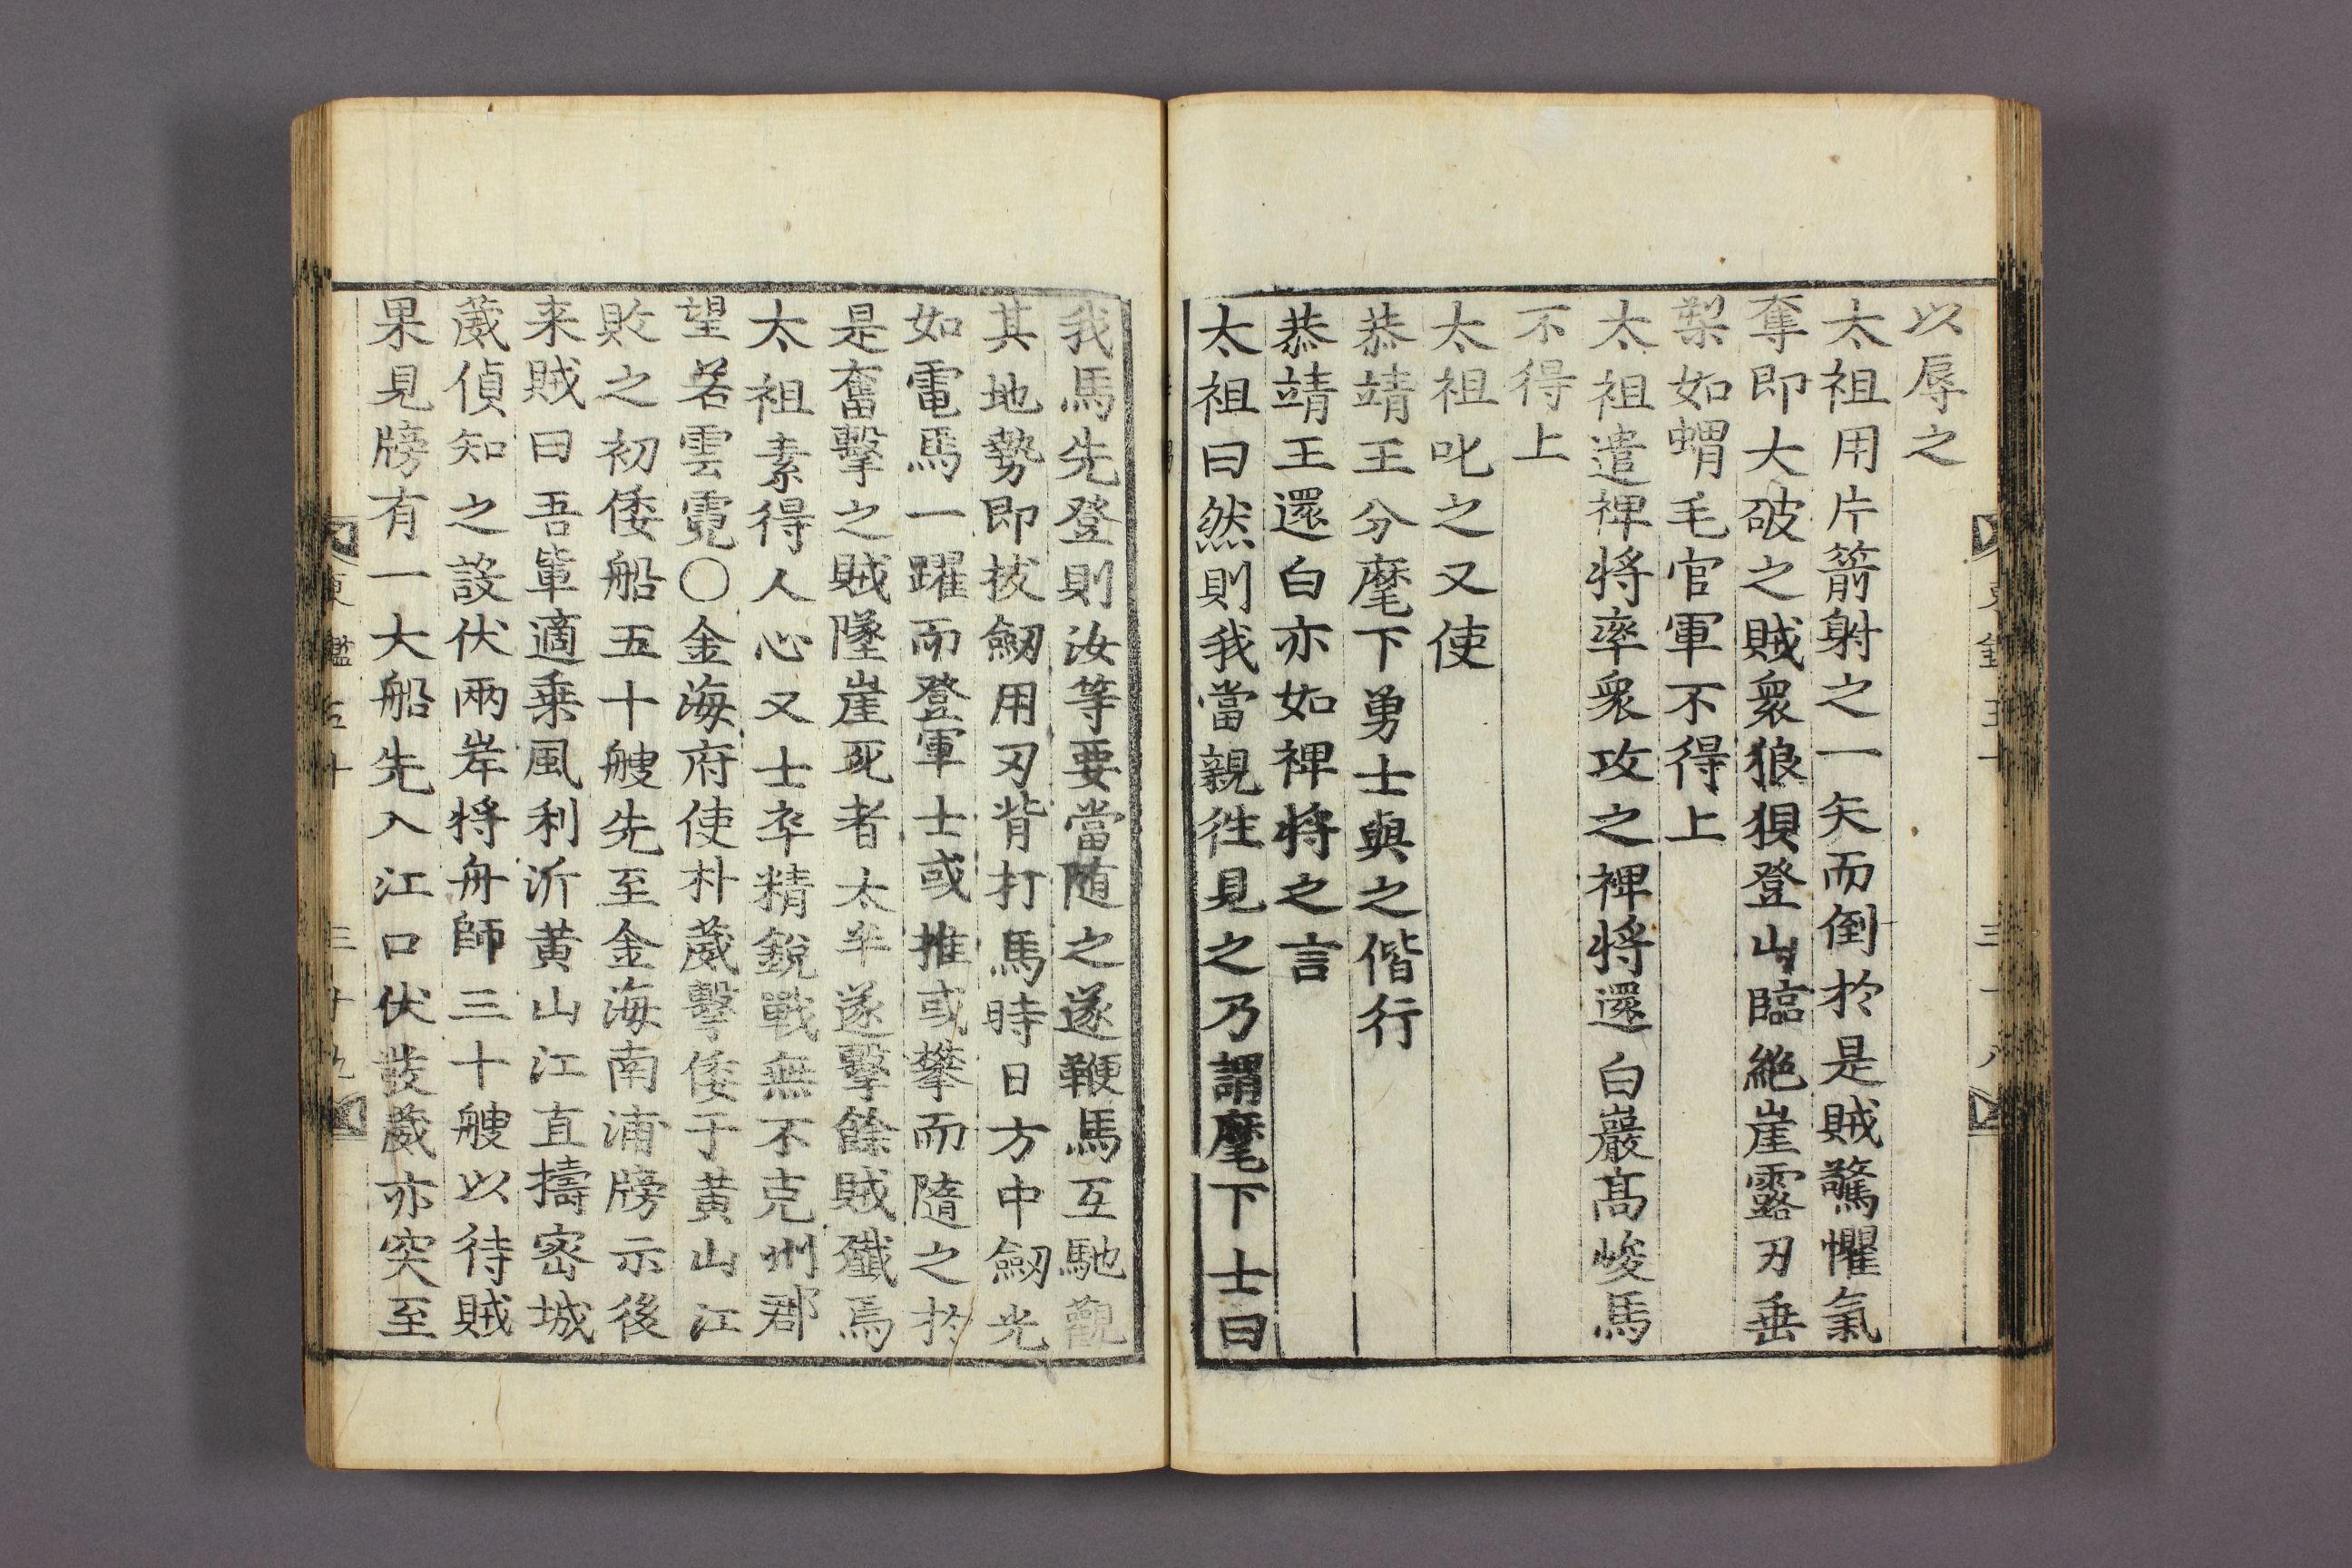 以辱之
太祖用片箭射之一矢而倒於是賊驚懼氣
奪即大破之賊衆狼狽登山臨絶崖露刃垂
槊如蝟毛官軍不得上
太祖遣裨將率衆攻之裨將還白巖髙峻馬
不得上
太祖叱之又使
恭靖王分麾下勇士與之偕行
恭靖王還白亦如裨將之言
太祖曰然則我當親徃見之乃謂麾下士曰
我馬先登則汝等要當随之遂鞭馬互馳觀
其地勢即拔劒用刃背打馬時日方中劒光
如電馬一躍而登軍士或推或攀而隨之於
是奮擊之賊墜崖死者太半遂擊餘賊殲焉
太祖素得人心又士卒精銳戰無不克州郡
望若雲霓〇金海府使朴葳擊倭于黄山江
敗之初倭船五十艘先至金海南浦牓示後
来賊曰吾軰適乗風利泝黄山江直擣宻城
葳偵知之設伏兩岸將舟師三十艘以待賊
果見牓有一大船先入江口伏發葳亦突至
東鑑五十
三十九